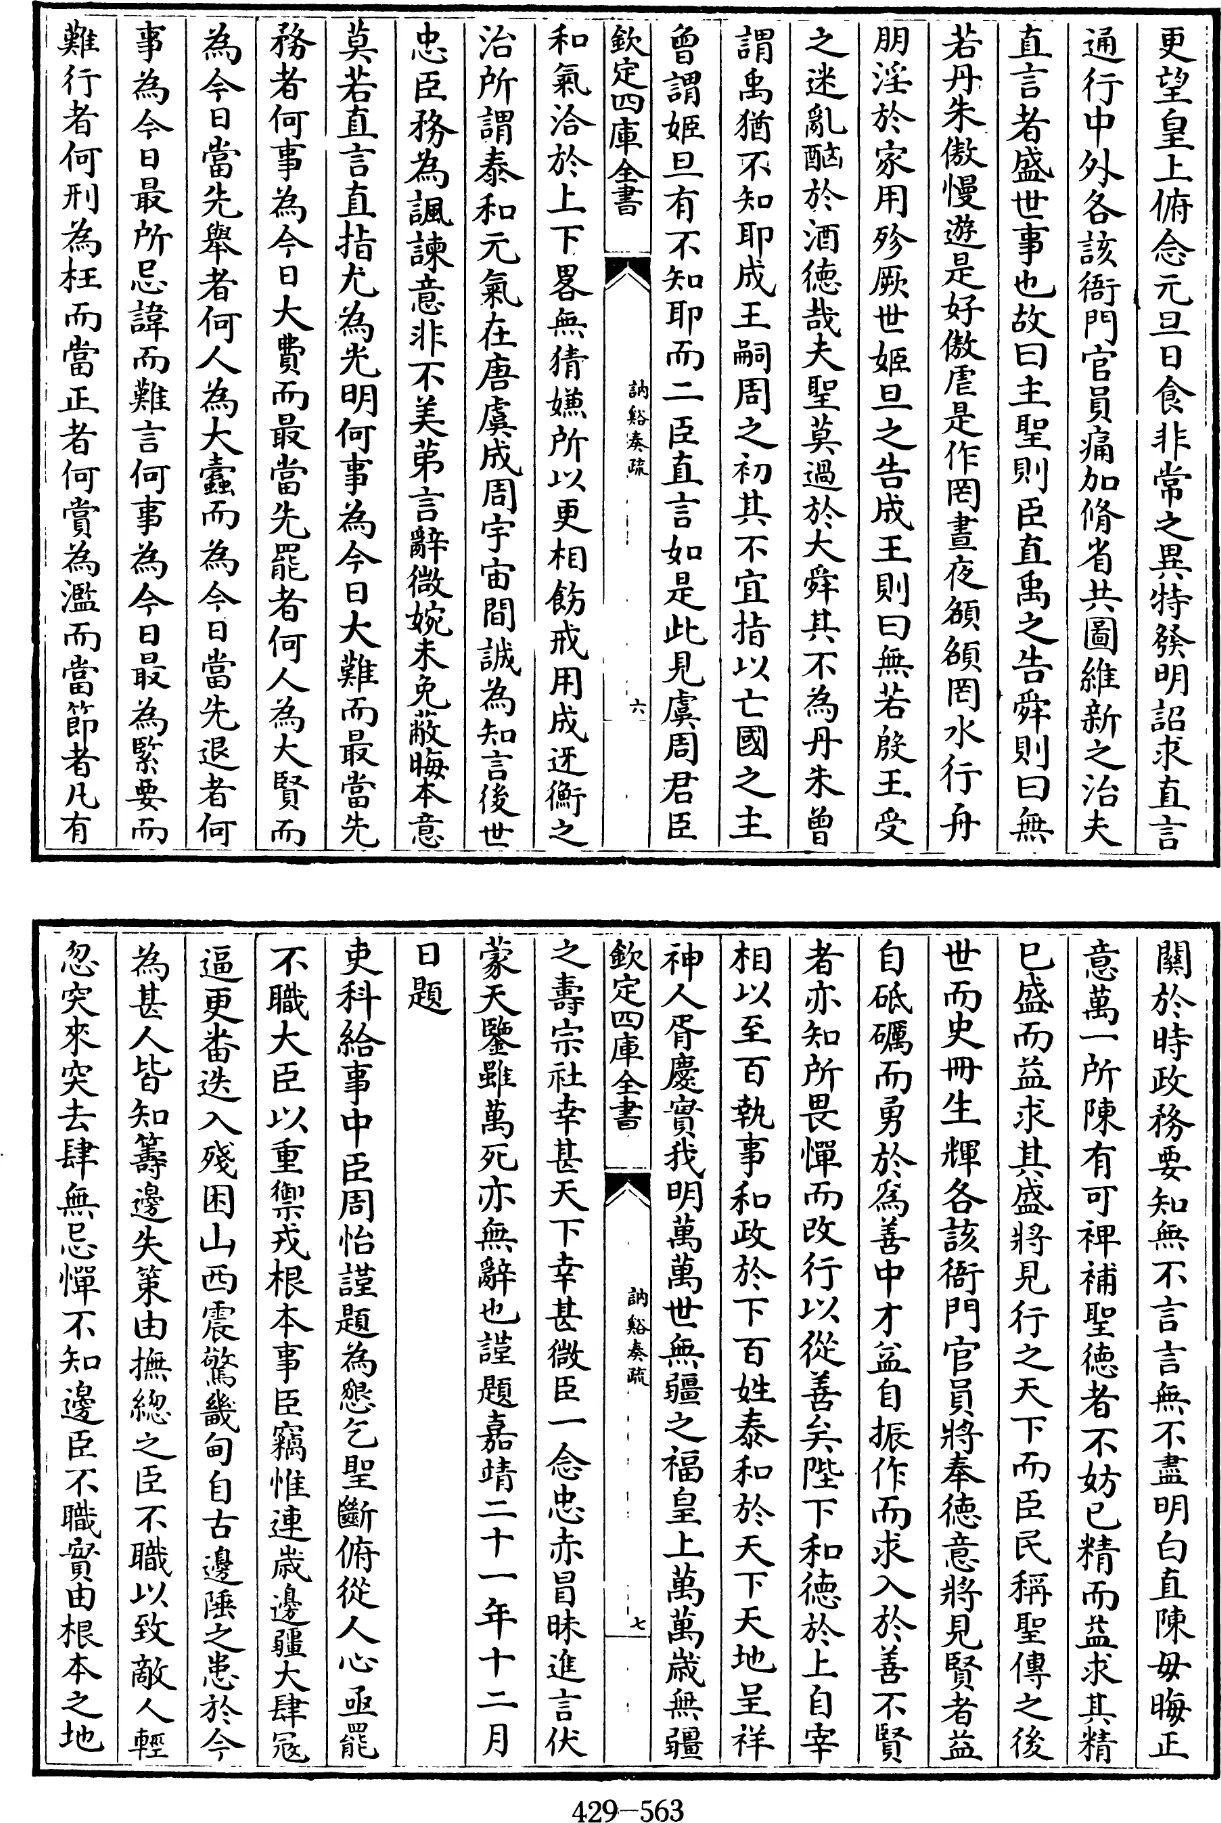 更望皇上俯念元旦日食非常之異特發明詔求直言
通行中外各該衙門官員痛加脩省共圖維新之治夫
直言者盛世事也故曰主聖則臣直禹之告舜則曰無
若丹朱傲慢遊是好傲虐是作罔晝夜頟頟罔水行舟
朋淫於家用殄厥世姬旦之告成王則曰無若殷王受
之迷亂酗於酒德哉夫聖莫過於大舜其不為丹朱曾
謂禹猶不知耶成王嗣周之初其不宜指以亡國之主
曾謂姬旦有不知耶而二臣直言如是此見虞周君臣
欽定四庫全書
訥谿奏疏
六
和氣洽於上下畧無猜嫌所以更相飭戒用成迓衡之
治所謂泰和元氣在唐虞成周宇宙間誠為知言後世
忠臣務為諷諫意非不美苐言辭微婉未免蔽晦本意
莫若直言直指尤為光明何事為今日大難而最當先
務者何事為今日大費而最當先罷者何人為大賢而
為今日當先舉者何人為大蠹而為今日當先退者何
事為今日最所忌諱而難言何事為今日最為緊要而
難行者何刑為枉而當正者何賞為濫而當節者凡有
關於時政務要知無不言言無不盡明白直陳毋晦正
意萬一所陳有可裨補聖德者不妨已精而益求其精
已盛而益求其盛將見行之天下而臣民稱聖傳之後
世而史冊生輝各該衙門官員將奉德意將見賢者益
自砥礪而勇於為善中才益自振作而求入於善不賢
者亦知所畏憚而改行以從善矣陛下和德於上自宰
相以至百執事和政於下百姓泰和於天下天地呈祥
神人胥慶實我明萬萬世無疆之福皇上萬萬歲無疆
欽定四庫全書
訥谿奏疏
七
之壽宗社幸甚天下幸甚微臣一念忠赤冒昧進言伏
蒙天鑒雖萬死亦無辭也謹題嘉靖二十一年十二月
日題
吏科給事中臣周怡謹題為懇乞聖斷俯從人心亟罷
不職大臣以重禦戎根本事臣竊惟連歲邊疆大肆寇
逼更番迭入殘困山西震驚畿甸自古邊陲之患於今
為甚人皆知籌邊失策由撫總之臣不職以致敵人輕
忽突來突去肆無忌憚不知邊臣不職實由根本之地
429-563